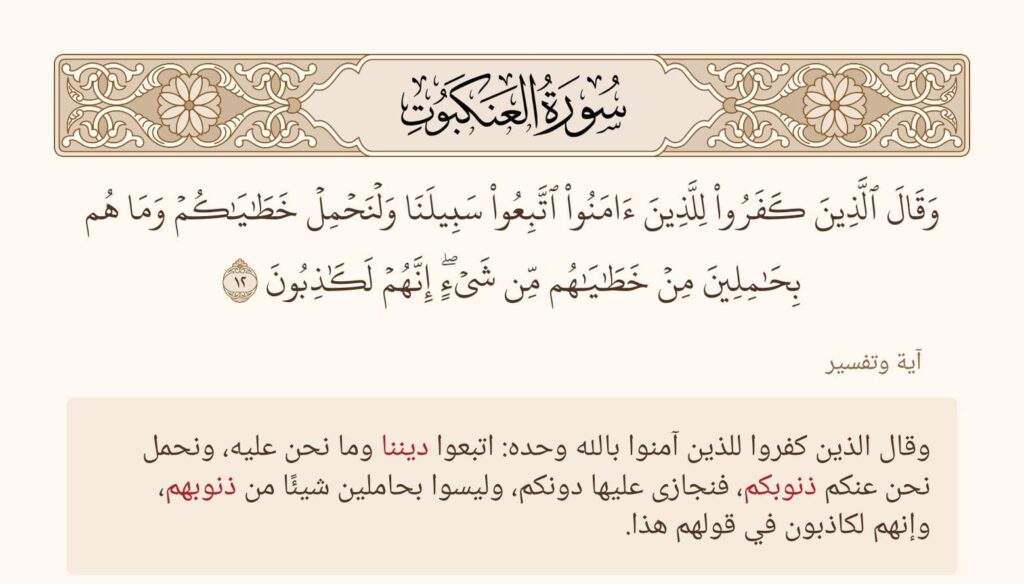 سُورَةُ العَنكَبُوتِ
وَقَالَ ٱلَّذِينَ كَفَرُواْ لِلَّذِينَ ءَامَنُواْ ٱتَّبِعُواْ سَبِيلَنَا وَلۡنَحۡمِلۡ خَطَٰيَٰكُمۡ وَمَا هُم
بِحَٰمِلِينَ مِنۡ خَطَٰيَٰهُم مِّن شَيۡءٍۖ إِنَّهُمۡ لَكَٰذِبُونَ ١٢
آية وتفسير
وقال الذين كفروا للذين آمنوا بالله وحده: اتبعوا ديننا وما نحن عليه، ونحمل
نحن عنكم ذنوبكم، فنجازى عليها دونكم، وليسوا بحاملين شيئًا من ذنوبهم،
وإنهم لكاذبون في قولهم هذا.